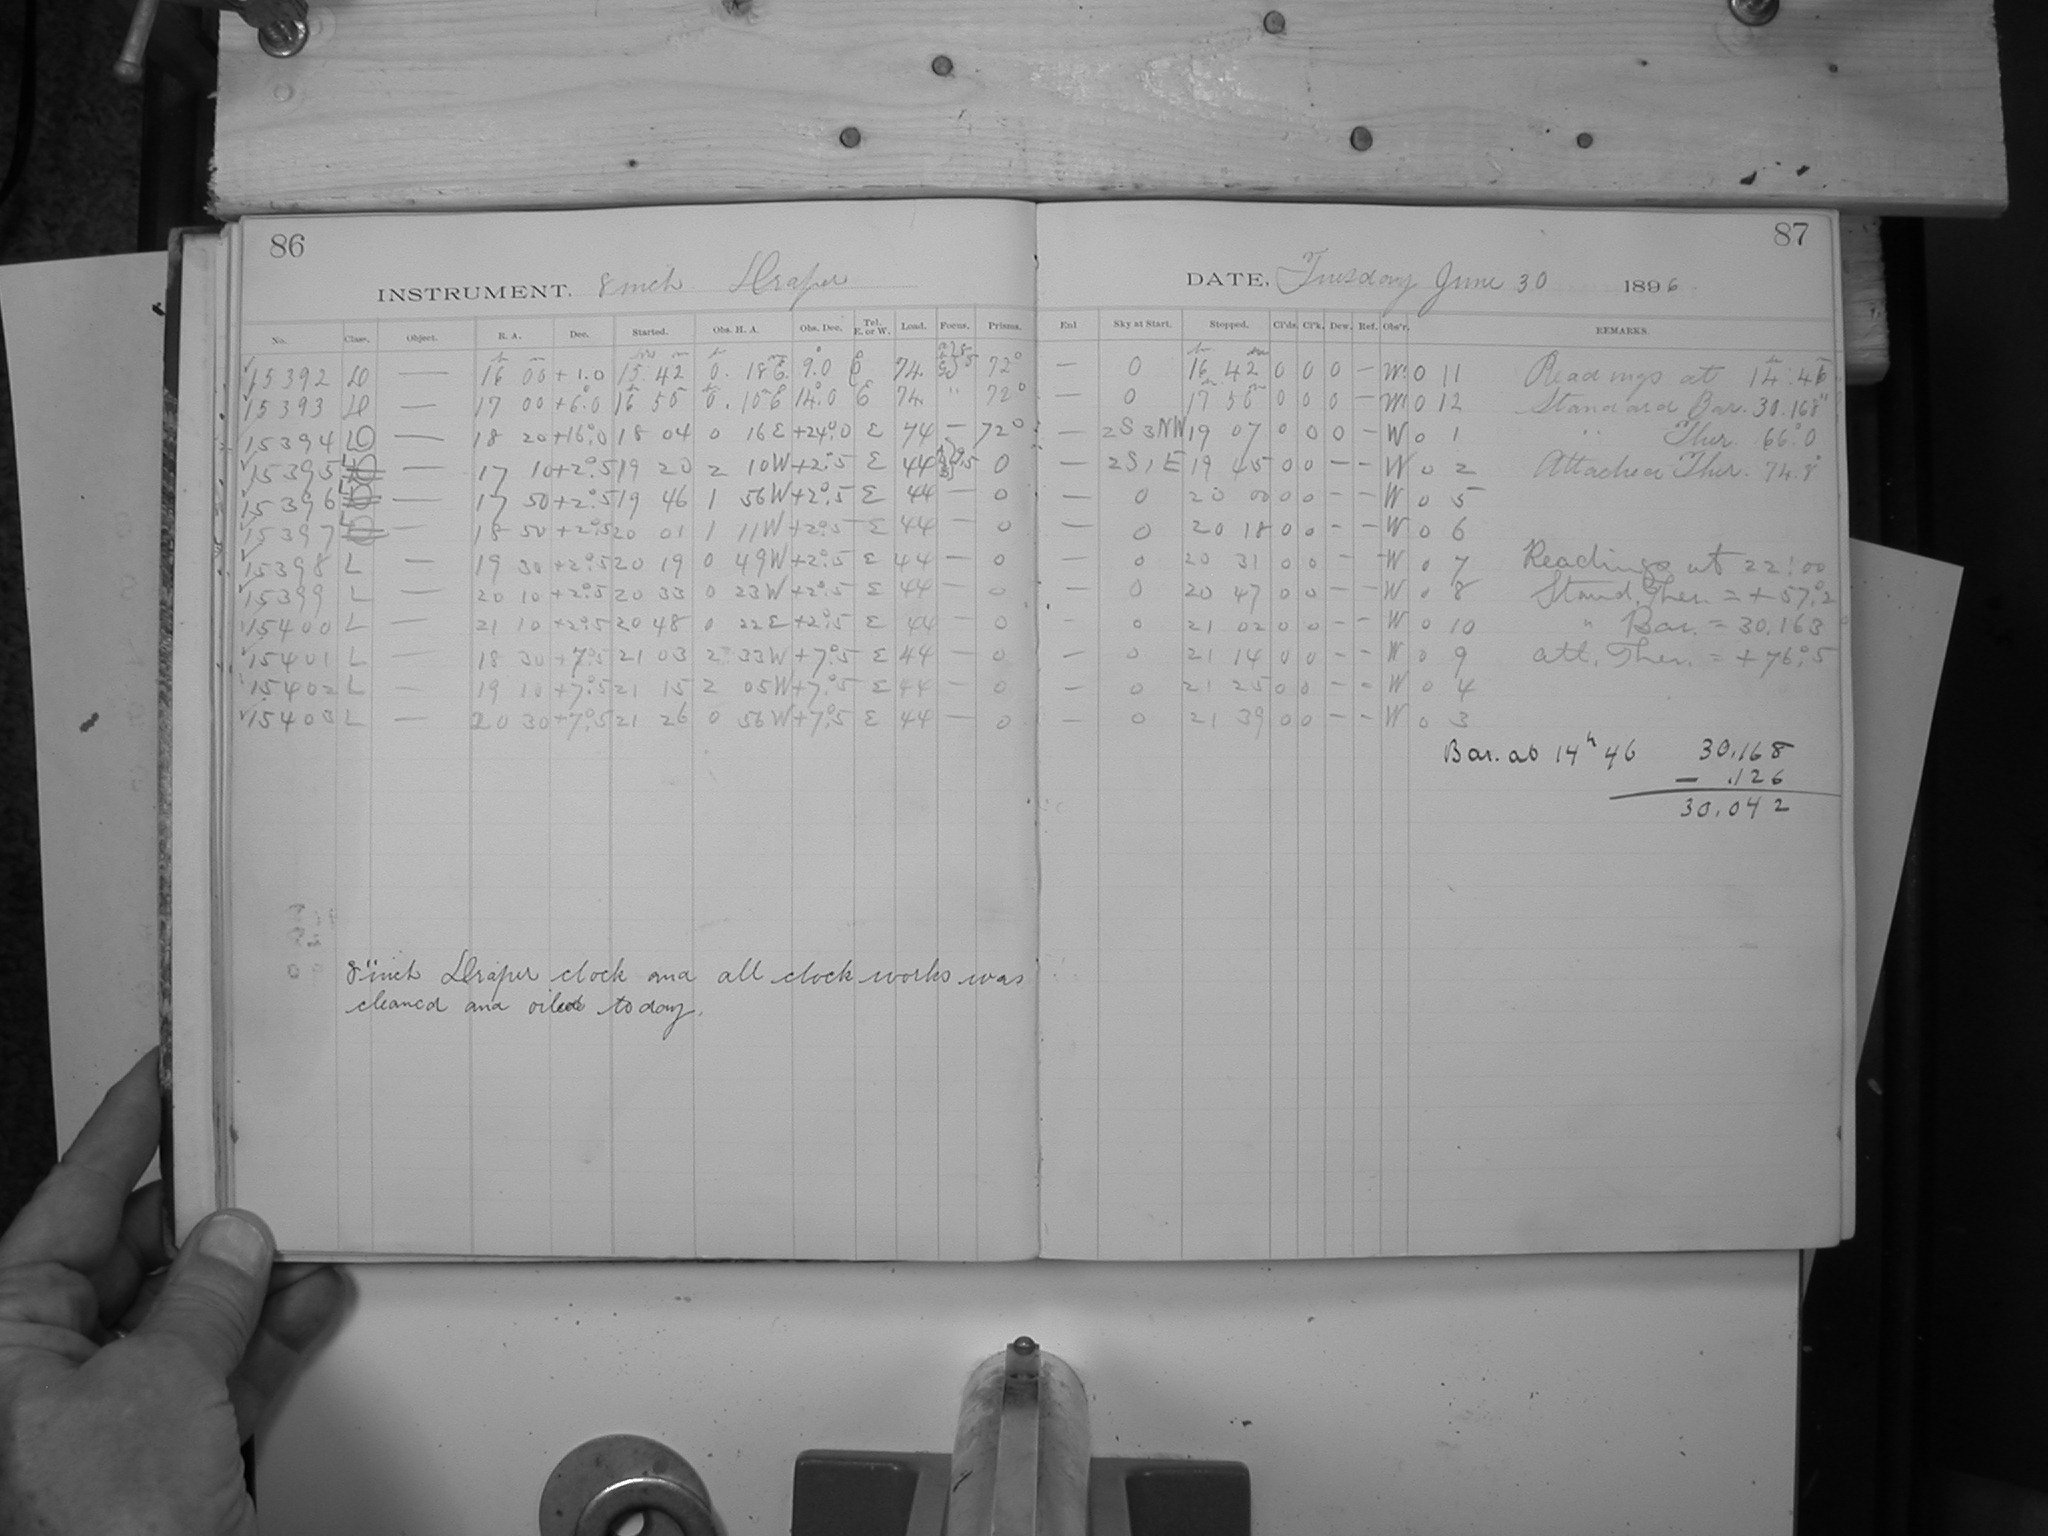 86
87
INSTRUMENT. 8 inch Draper
DATE, Tuesday June 30 1896
No. Class. Object. R. A. Dec. Started. Obs. H. A. Obs. Dec. Tel. E. or W. Load. Focus. Prisms. Enl Sky at Start. Stopped. Cl'ds. Cl'k. Dew. Ref. Obs'r. REMARKS.
15392 — 16 00 + 1.0 15 42 0. 18 E. 9.0 E 74 72° — 0 16 42 0 0 0 — W. 0 11 Readings at
15393 — 17 00 + 6.0 16 50 14.0 E 74 " 72° — 0 17 0 0 0 — W. 0 12 Standard Bar. 30.168"
15394 — 18 20 +16°.0 18 04 0 16 E +24°.0 E 74 — 72° — 2S 3NW 19 07 0 0 0 — W 0 1 " Ther. 66°.0
15395 L — 17 10 +2°.5 19 20 2 10W +2°.5 E 44 0 — 2S 1E 19 45 0 0 — — W 0 2 Attached Ther. 74.8°
15396 L — 17 50 +2°.5 19 46 1 56W +2°.5 E 44 — 0 — 0 20 00 0 0 — — W 0 5
15397 L — 18 50 +2°.5 20 01 1 11W +2°.5 E 44 — 0 — 0 20 18 0 0 — — W 0 6
15398 L — 19 30 +2°.5 20 19 0 49W +2°.5 E 44 — 0 — 0 20 31 0 0 — — W 0 7 Readings at 22:00
15399 L — 20 10 +2°.5 20 33 0 23W +2°.5 E 44 — 0 — 0 20 47 0 0 — — W 0 8 Stand. Ther. = +57°.2
15400 L — 21 10 +2°.5 20 48 0 22E +2°.5 E 44 — 0 — 0 21 02 0 0 — — W 0 10 " Bar. = 30.163
15401 L — 18 30 +7°.5 21 03 2 33W +7°.5 E 44 — 0 — 0 21 14 0 0 — — W 0 9 att. Ther. = +76°.5
15402 L — 19 10 +7°.5 21 15 2 05W +7°.5 E 44 — 0 — 0 21 25 0 0 — — W 0 4
15403 L — 20 30 +7°.5 21 26 0 56W +7°.5 E 44 — 0 — 0 21 39 0 0 — — W 0 3
Bar. at 14h 46 30.168
— .126
30.042
8"inch Draper clock and all clock works was
cleaned and oiled today.